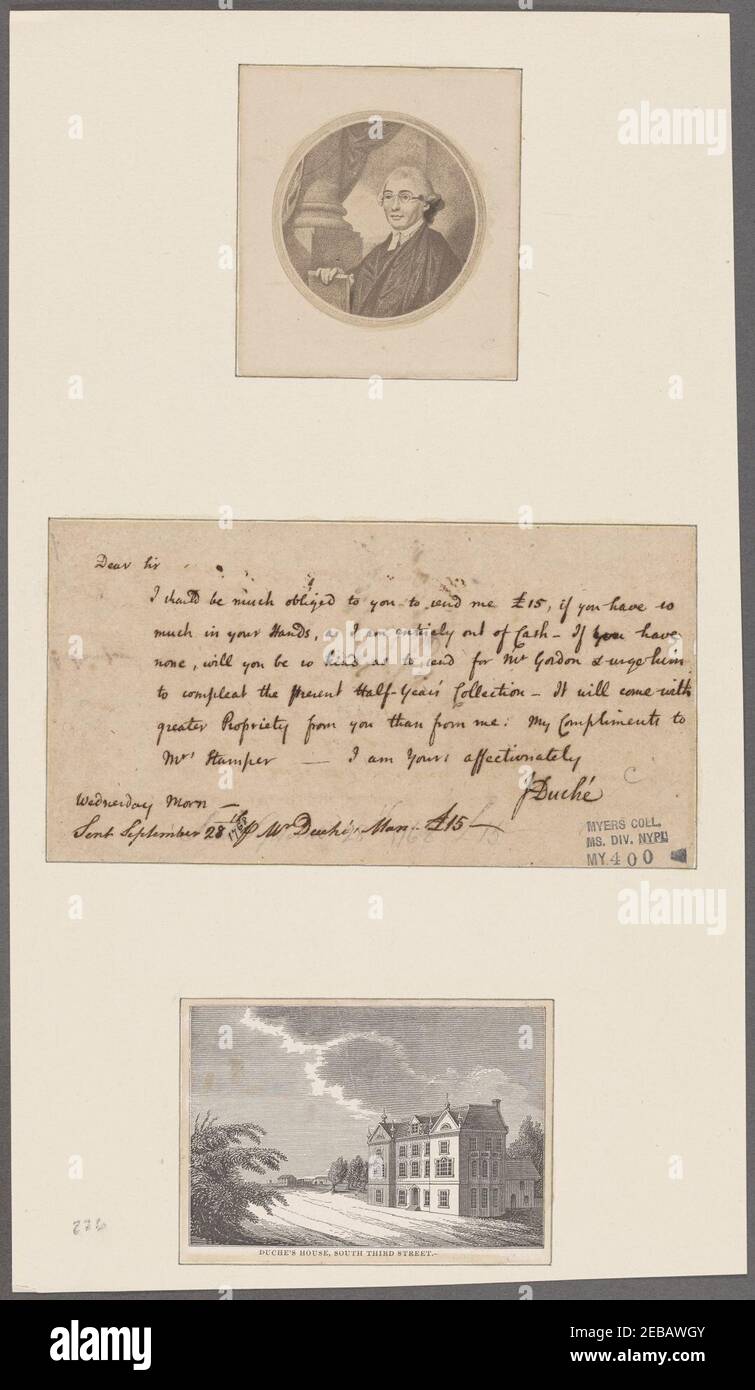 Dear Sir
I should be much obliged to you to send me £15, if you have so
much in your Hands, as I am entirely out of Cash – If you have
none, will you be so kind as to send for Mr Gordon & urge him
to compleat the present Half-Year's Collection – It will come with
greater Propriety from you than from me: My Compliments to
Mrs Stamper — I am Yours affectionately
J Duché
Wednesday Morn –
Sent September 28th P Mr Duché's Man £15 —
MYERS COLL.
MS. DIV. NYPL
MY 400
DUCHE'S HOUSE, SOUTH THIRD STREET.–
276
alamy
a
alamy
Image ID: 2EBAWGY
www.alamy.com